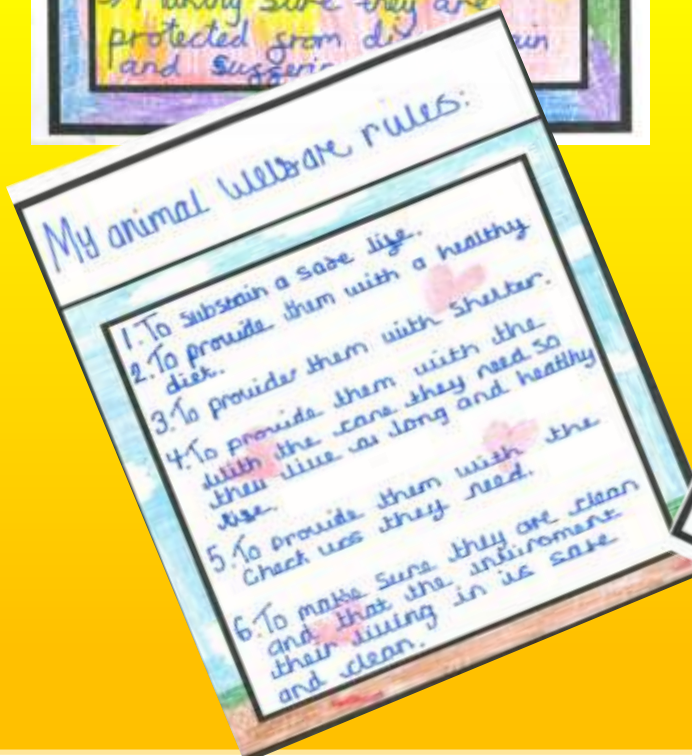 Making sure they are
protected from
and suffering
My animal welfare rules:
1. To substain a safe life.
2. To provide them with a healthy
diet.
3. To provide them with shelter.
4. To provide them with the
with the care they need so
they live a long and healthy
life.
5. To provide them with the
check ups they need.
6. To make sure they are clean
and that the inviroment
their living in is safe
and clean.